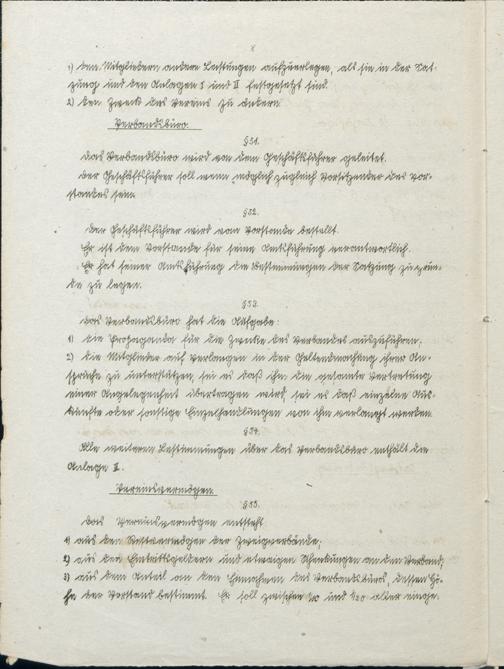 8
1) den Mitgliedern andere Leistungen aufzuerlegen, als sie in der Sat-
zung und den Anlagen I und II festgesetzt sind.
2) den Zweck des Vereins zu ändern
Verbandsbüro.
§ 31.
Das Verbandsbüro wird von dem Geschäftsführer geleitet.
Der Geschäftsführer soll wenn möglich zugleich Vorsitzender des Vor-
standes sein.
§ 32.
Der Geschäftsführer wird vom Vorstande bestellt.
Er ist dem Vorstande für seine Amtsführung verantwortlich.
Er hat seiner Amtsführung die Bestimmungen der Satzung zu grun-
de zu legen.
§ 33.
Das Verbandsbüro hat die Aufgabe:
1) die Propaganda für die Zwecke des Verbandes auszuführen.
2) die Mitglieder auf Verlangen in der Geltendmachung ihrer An-
sprüche zu unterstützen, sei es daß ihm die gesamte Vertretung
einer Angelegenheit übertragen wird, sei es daß einzelne Aus-
künfte oder sonstige Einzelhandlungen von ihm verlangt werden.
§ 34.
Alle weiteren Bestimmungen über das Verbandsbüro enthält die
Anlage II.
Vereinsvermögen.
§ 35.
Das Vereinsvermögen entsteht
1) aus dem Restvermögen der Zweigverbände,
2) aus den Eintrittsgeldern und etwaigen Schenkungen an den Verband,
3) aus dem Anteil an den Einnahmen des Verbandsbüros, dessen Hö-
he der Vorstand bestimmt. Er soll zwischen 1/10 und 1/20 aller einge-